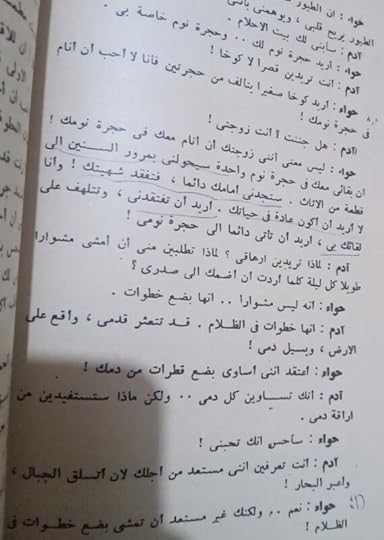 حواء : ان الطيور
الطيور يريح قلبى ، ويوهمنى بأننى
آدم : سأبنى لك بيت الاحلام .
حواء : أريد حجرة نوم لك .. وحجرة نوم خاصة بى .
آدم : أنت تريدين قصرا لا كوخا !
حواء : أريد كوخا صغيرا يتألف من حجرتين فأنا لا أحب أن أنام
فى حجرة نومك !
آدم : هل جننت ؟ أنت زوجتى !
حواء : ليس معنى أننى زوجتك أن أنام معك فى حجرة نومك !
ان بقائى معك فى حجرة نوم واحدة سيحولنى بمرور السنين الى
قطعة من الاثاث . ستجدنى أمامك دائما ، فتفقد شهيتك ! وأنا
لا أريد أن أكون عادة فى حياتك . أريد أن تفتقدنى ، وتتلهف على
لقائك بى ، أريد أن تأتى دائما الى حجرة نومى !
آدم : لماذا تريدين ارهاقى ؟ لماذا تطلبين منى أن أمشى مشوارا
طويلا كل ليلة كلما أردت أن أضمك الى صدرى ؟
حواء : انه ليس مشوارا .. انها بضع خطوات .
آدم : انها خطوات فى الظلام . قد تتعثر قدمى ، وأقع على
الارض ، ويسيل دمى !
حواء : أعتقد اننى أساوى بضع قطرات من دمك !
آدم : انك تساوين كل دمى .. ولكن ماذا ستستفيدين من
اراقة دمى .
حواء : سأحس انك تحبنى !
آدم : أنت تعرفين اننى مستعد من أجلك لان أتسلق الجبال ،
وأعبر البحار !
حواء : نعم .. ولكنك غير مستعد أن تمشى بضع خطوات فى
الظلام !